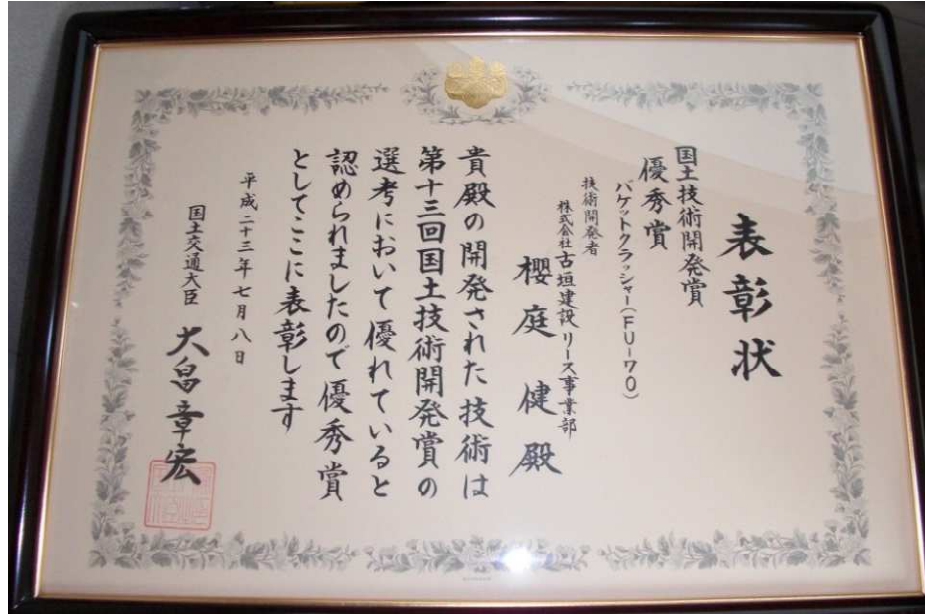 表彰状
国土技術開発賞
優秀賞
バケットクラッシャー(FU-70)
技術開発者
株式会社古垣建設リース事業部
櫻庭 健殿
貴殿の開発された技術は
第十三回国土技術開発賞の
選考において優れていると
認められましたので優秀賞
としてここに表彰します
平成二十三年七月八日
国土交通大臣 大畠章宏